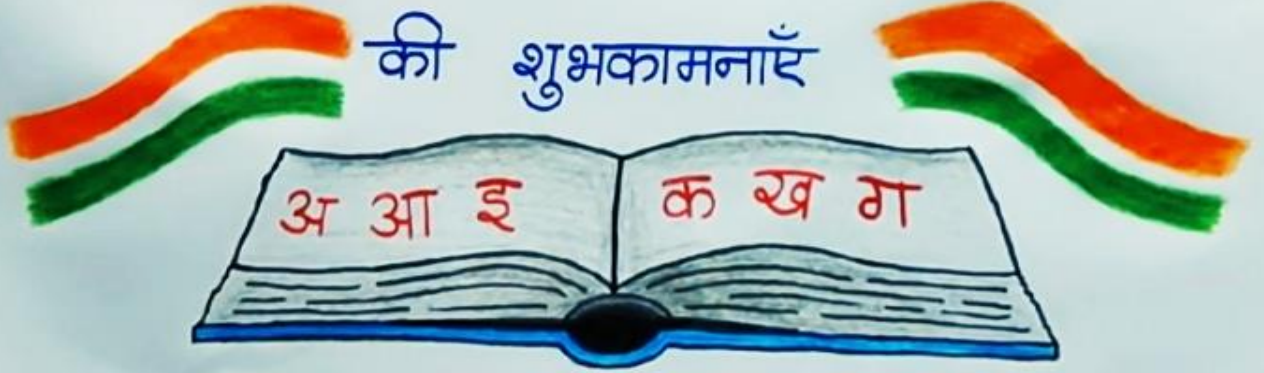 की शुभकामनाएँ
अ आ इ क ख ग